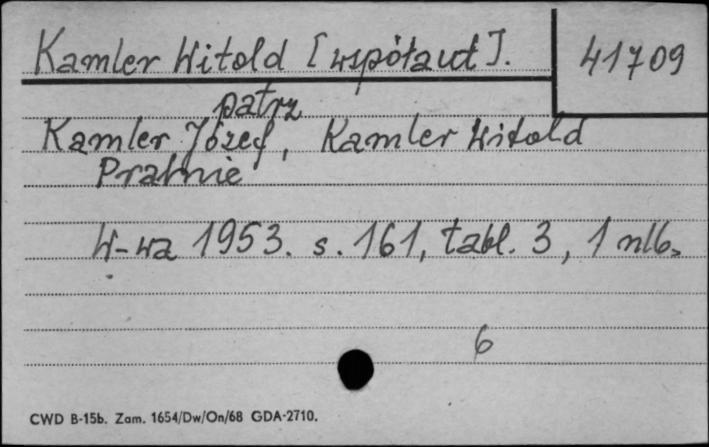 Kamler Witold [współaut].
41709
patrz
Kamler Józef, Kamler Witold
Pralnie
W-wa 1953. s. 161, tabl. 3, 1 nlb.
6
CWD B-15b. Zam. 1654/Dw/On/68 GDA-2710.